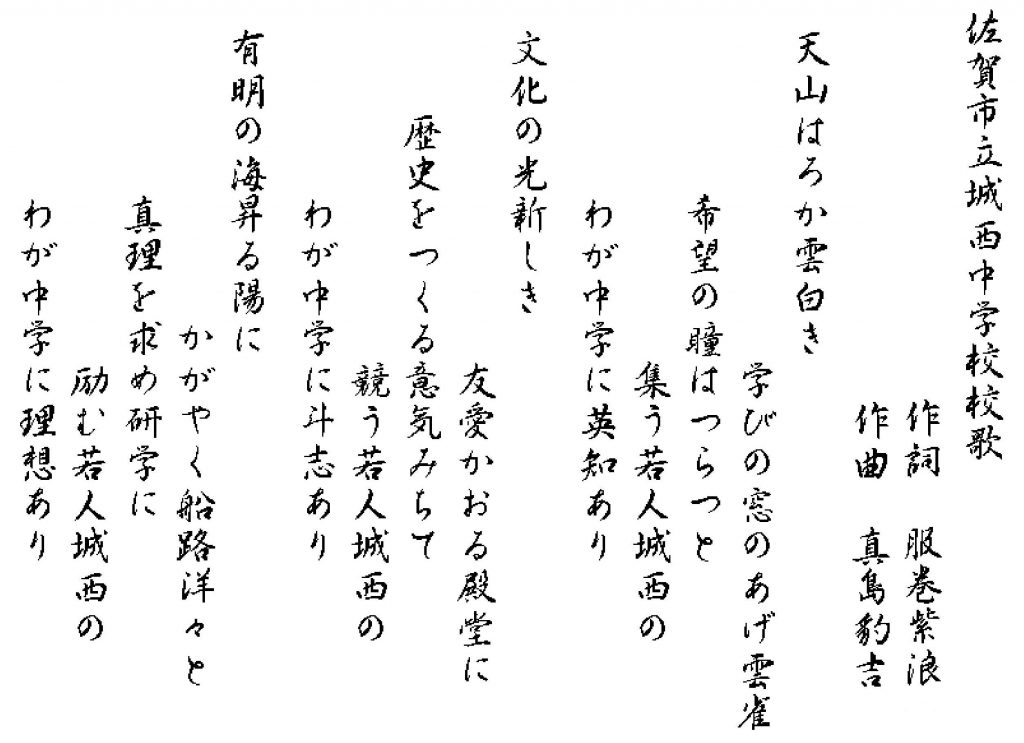 佐賀市立城西中学校校歌
作詞　服巻紫浪
作曲　真島豹吉
天山はろか雲白き
学びの窓のあげ雲雀
希望の瞳はつらつと
集う若人城西の
わが中学に英知あり
文化の光新しき
友愛かおる殿堂に
歴史をつくる意気みちて
競う若人城西の
わが中学に斗志あり
有明の海昇る陽に
かがやく船路洋々と
真理を求め研学に
励む若人城西の
わが中学に理想あり